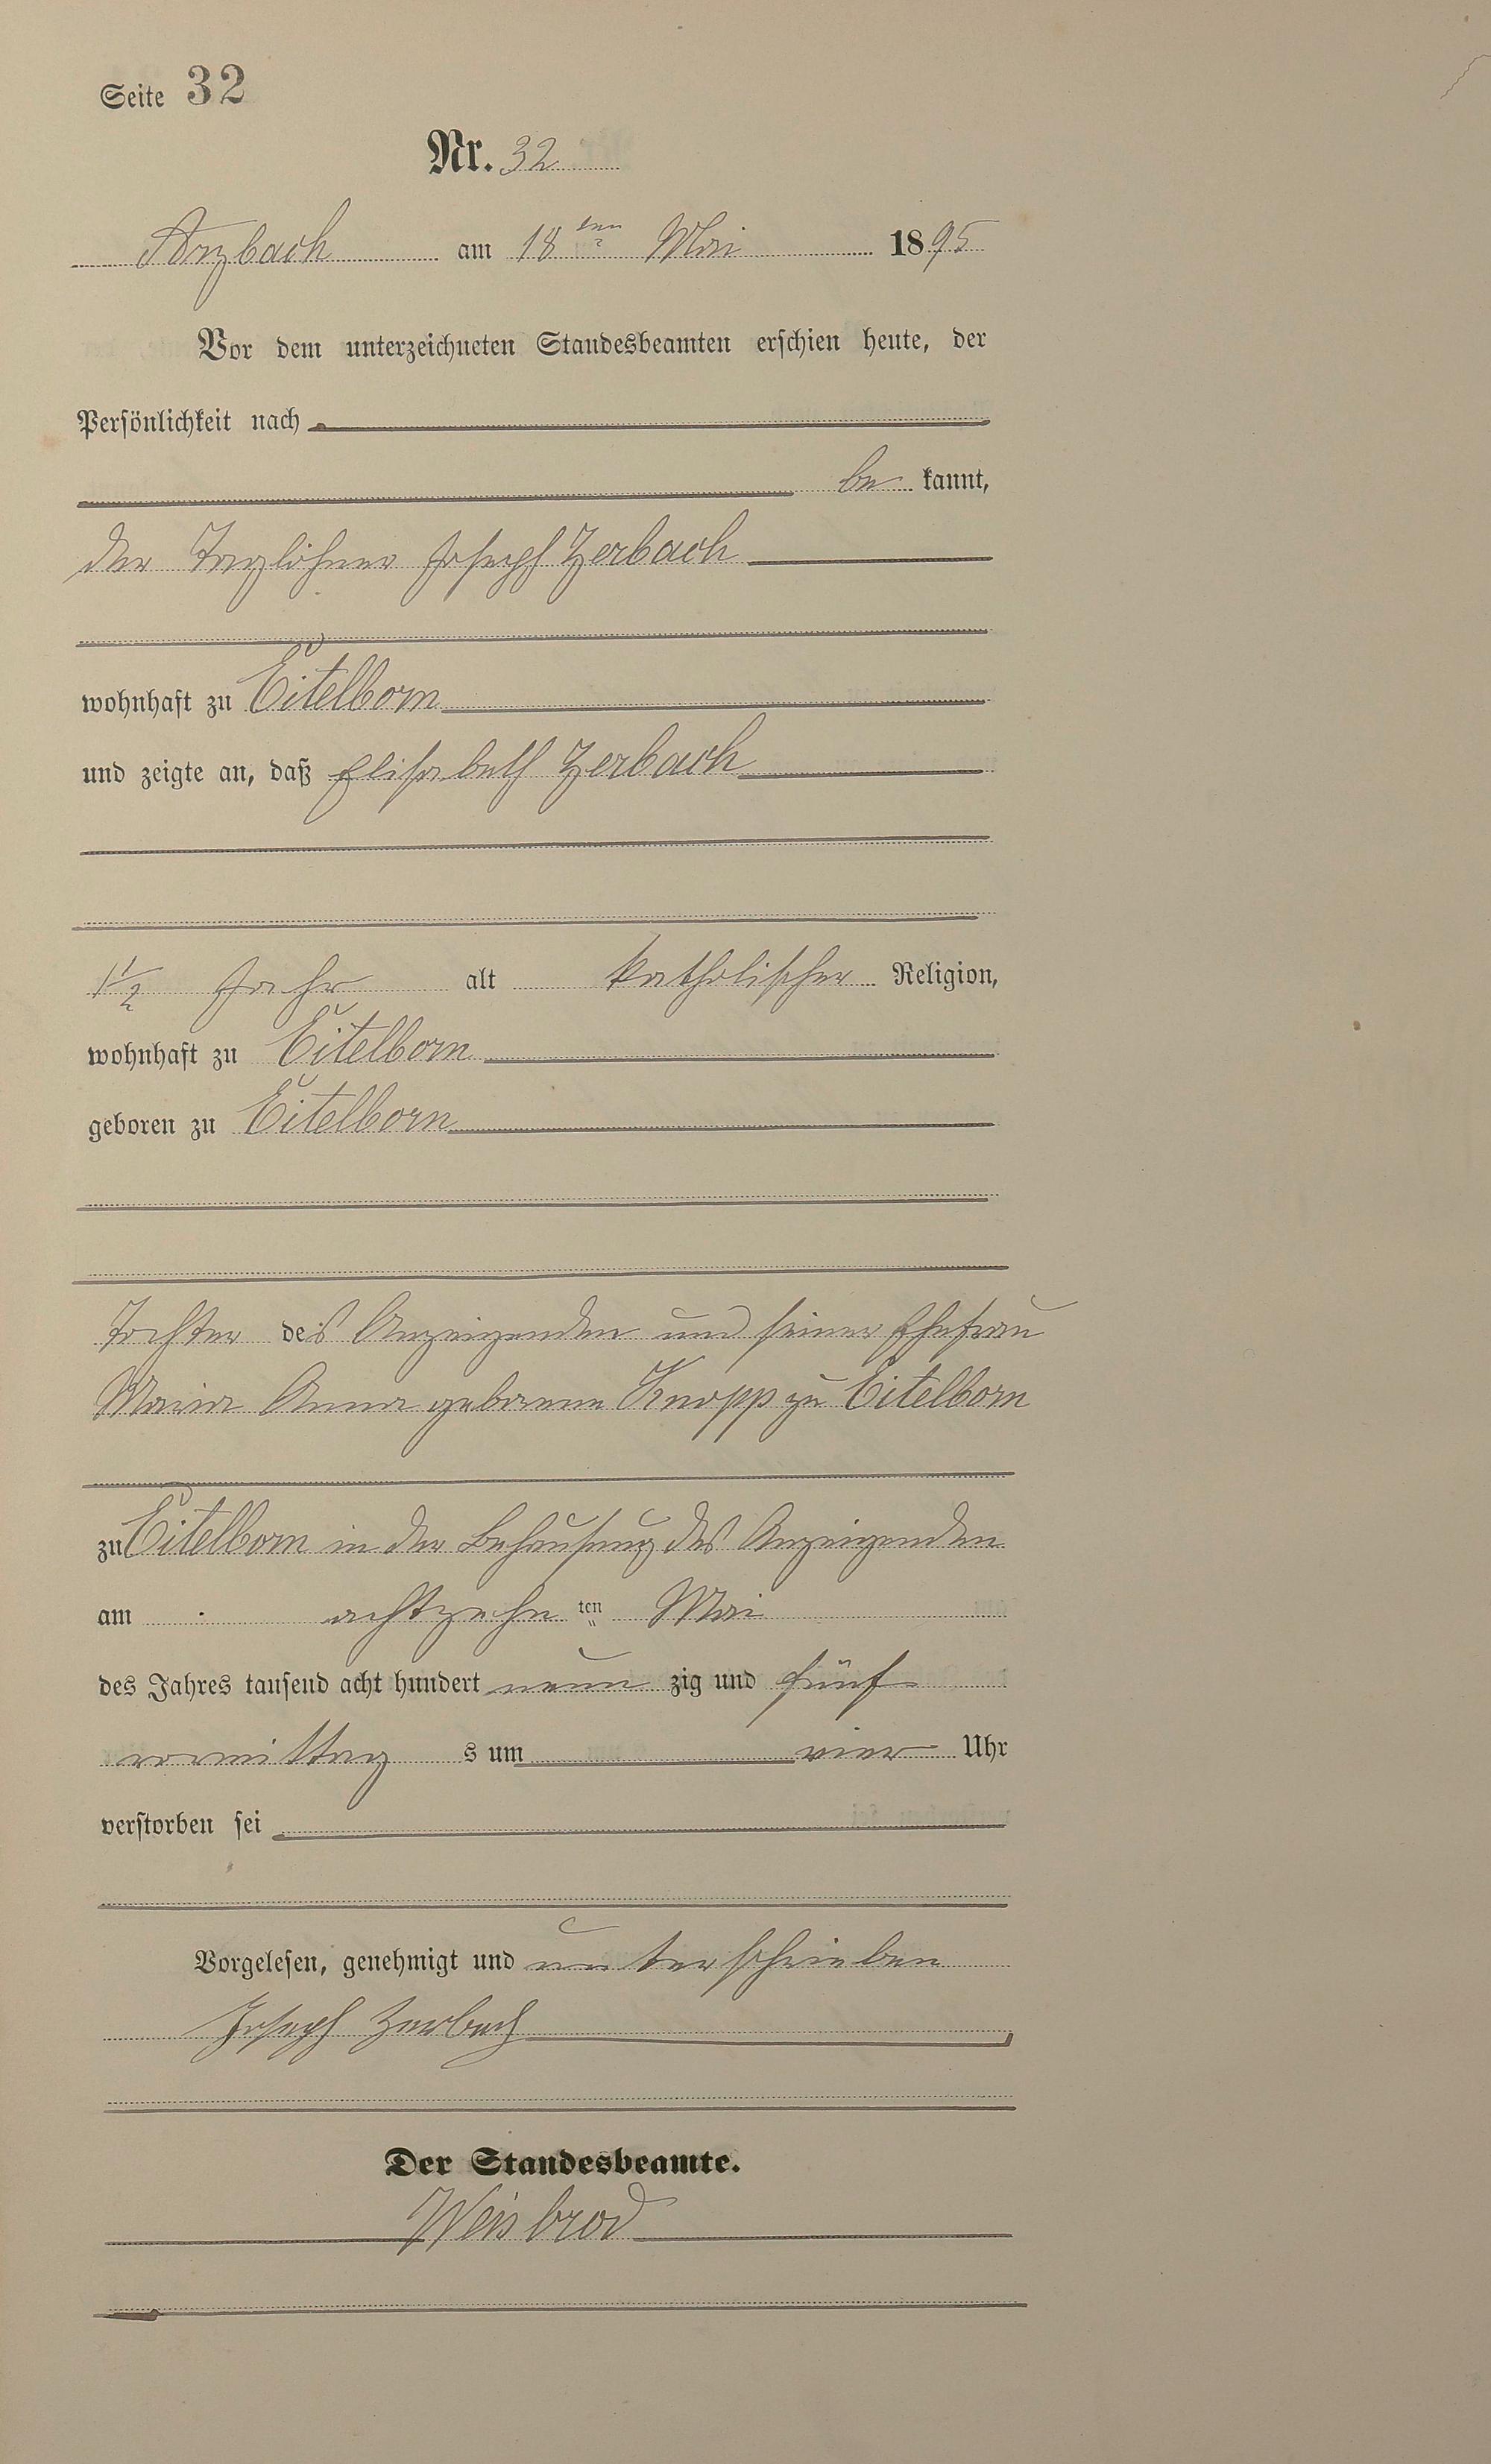 Seite 32
Nr. 32
Arzbach am 18ten Mai 1895
Vor dem unterzeichneten Standesbeamten erschien heute, der
Persönlichkeit nach
be kannt,
der Taglöhner Joseph Zerbach
wohnhaft zu Eitelborn
und zeigte an, daß Elisabeth Zerbach
1 1/2 Jahr alt katholischer Religion,
wohnhaft zu Eitelborn
geboren zu Eitelborn
Tochter des Anzeigenden und seiner Ehefrau
Maria Anna geborene Knopp zu Eitelborn
zu Eitelborn in der Behausung des Anzeigenden
am achtzehn ten Mai
des Jahres tausend acht hundert neun zig und fünf
vormittag s um vier Uhr
verstorben sei
Vorgelesen, genehmigt und unterschrieben
Joseph Zerbach
Der Standesbeamte.
Weisbrod